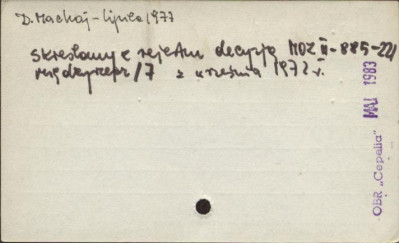 D. Machaj - lipiec 1977
skreślany z rejestru decyzją MOZ II-885-22/
/7 z września 1972 r.
MAJ 1983
OBR "Cepelia"